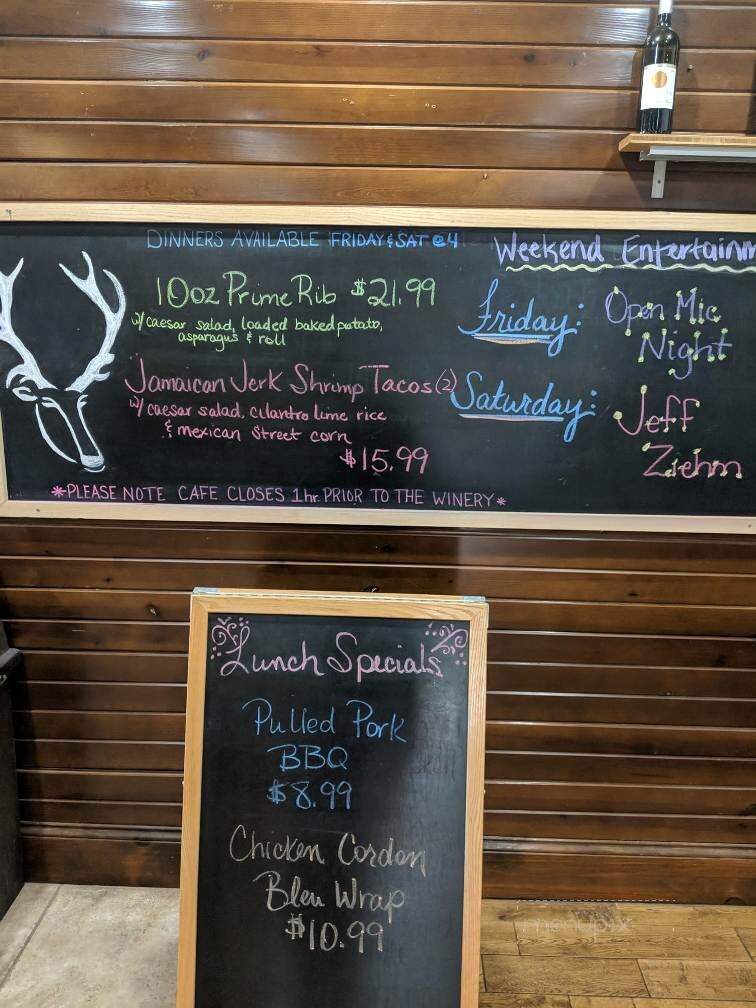 DINNERS AVAILABLE FRIDAY & SAT @ 4
10oz Prime Rib $21.99
w/ caesar salad, loaded baked potato,
asparagus & roll
Jamaican Jerk Shrimp Tacos (2)
w/ caesar salad, cilantro lime rice
& mexican street corn
$15.99
*PLEASE NOTE CAFE CLOSES 1hr PRIOR TO THE WINERY*
Weekend Entertainm
Friday: Open Mic
Night
Saturday: Jeff
Ziehm
Lunch Specials
Pulled Pork
BBQ
$8.99
Chicken Cordon
Bleu Wrap
$10.99